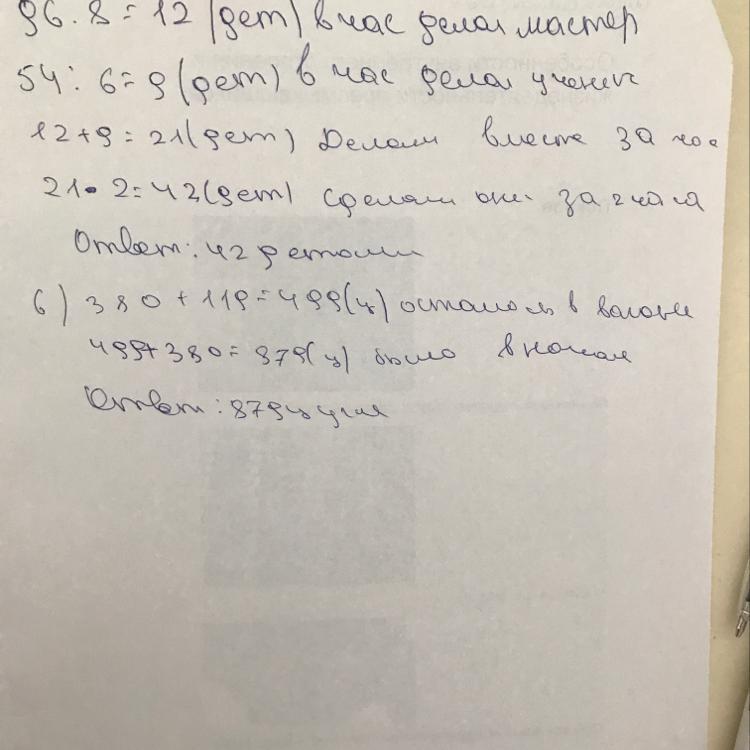 96:8=12 (дет) в час делал мастер
54:6=9 (дет) в час делал ученик
12+9=21(дет) Делали вместе за час
21•2=42(дет) сделали они за 2 часа
Ответ: 42 детали
б) 380+119=499(ц) осталось в вагоне
499+380=879(ц) было вначале
Ответ: 879 ц угля